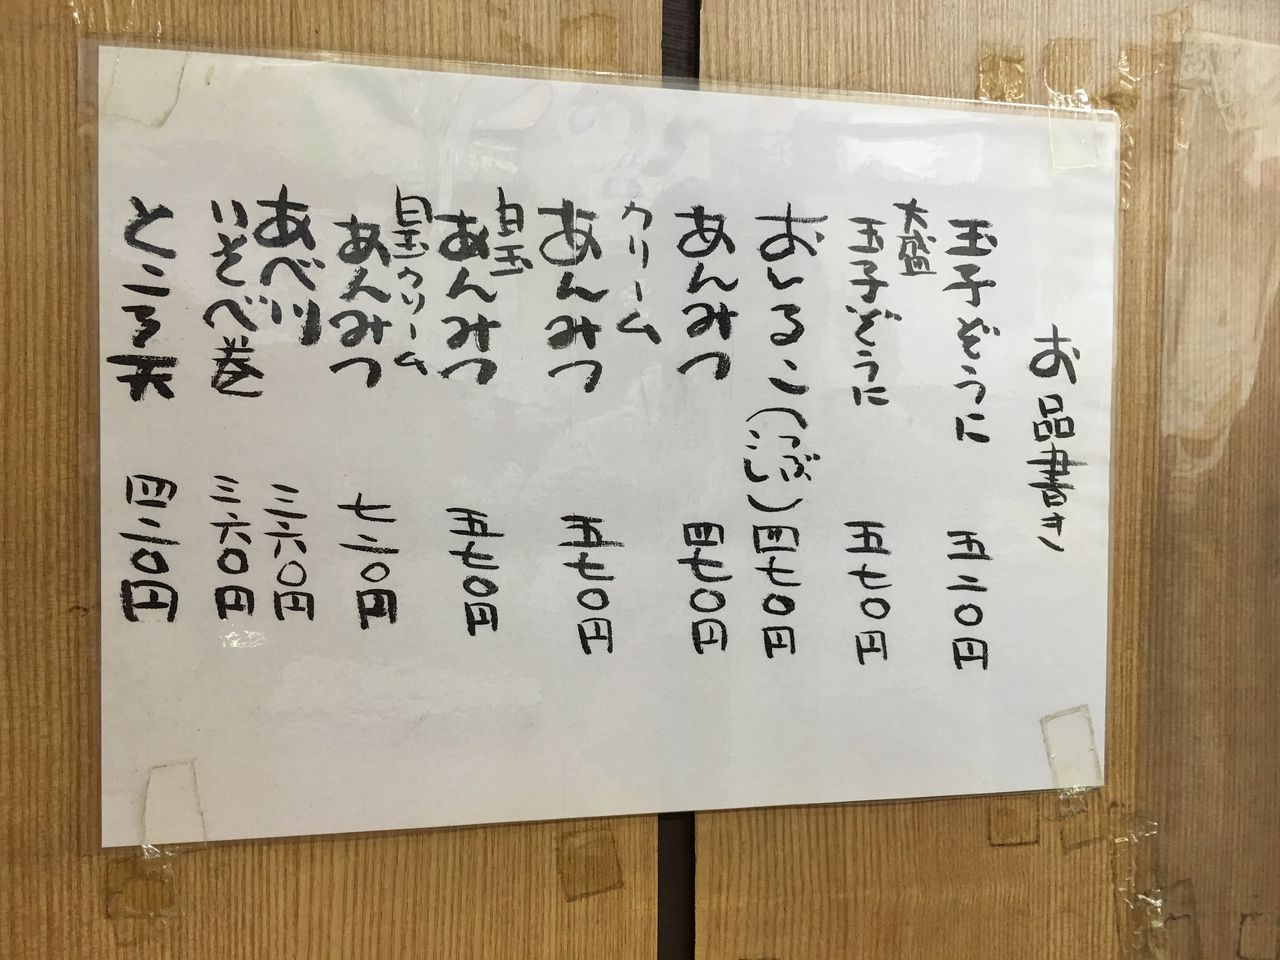 お品書き
玉子ぞうに 五二〇円
大盛玉子ぞうに 五七〇円
おしるこ(つぶ こし) 四七〇円
あんみつ 四七〇円
クリームあんみつ 五七〇円
白玉あんみつ 五七〇円
白玉クリームあんみつ 七二〇円
あべ川 三六〇円
いそべ巻 三六〇円
ところ天 四二〇円